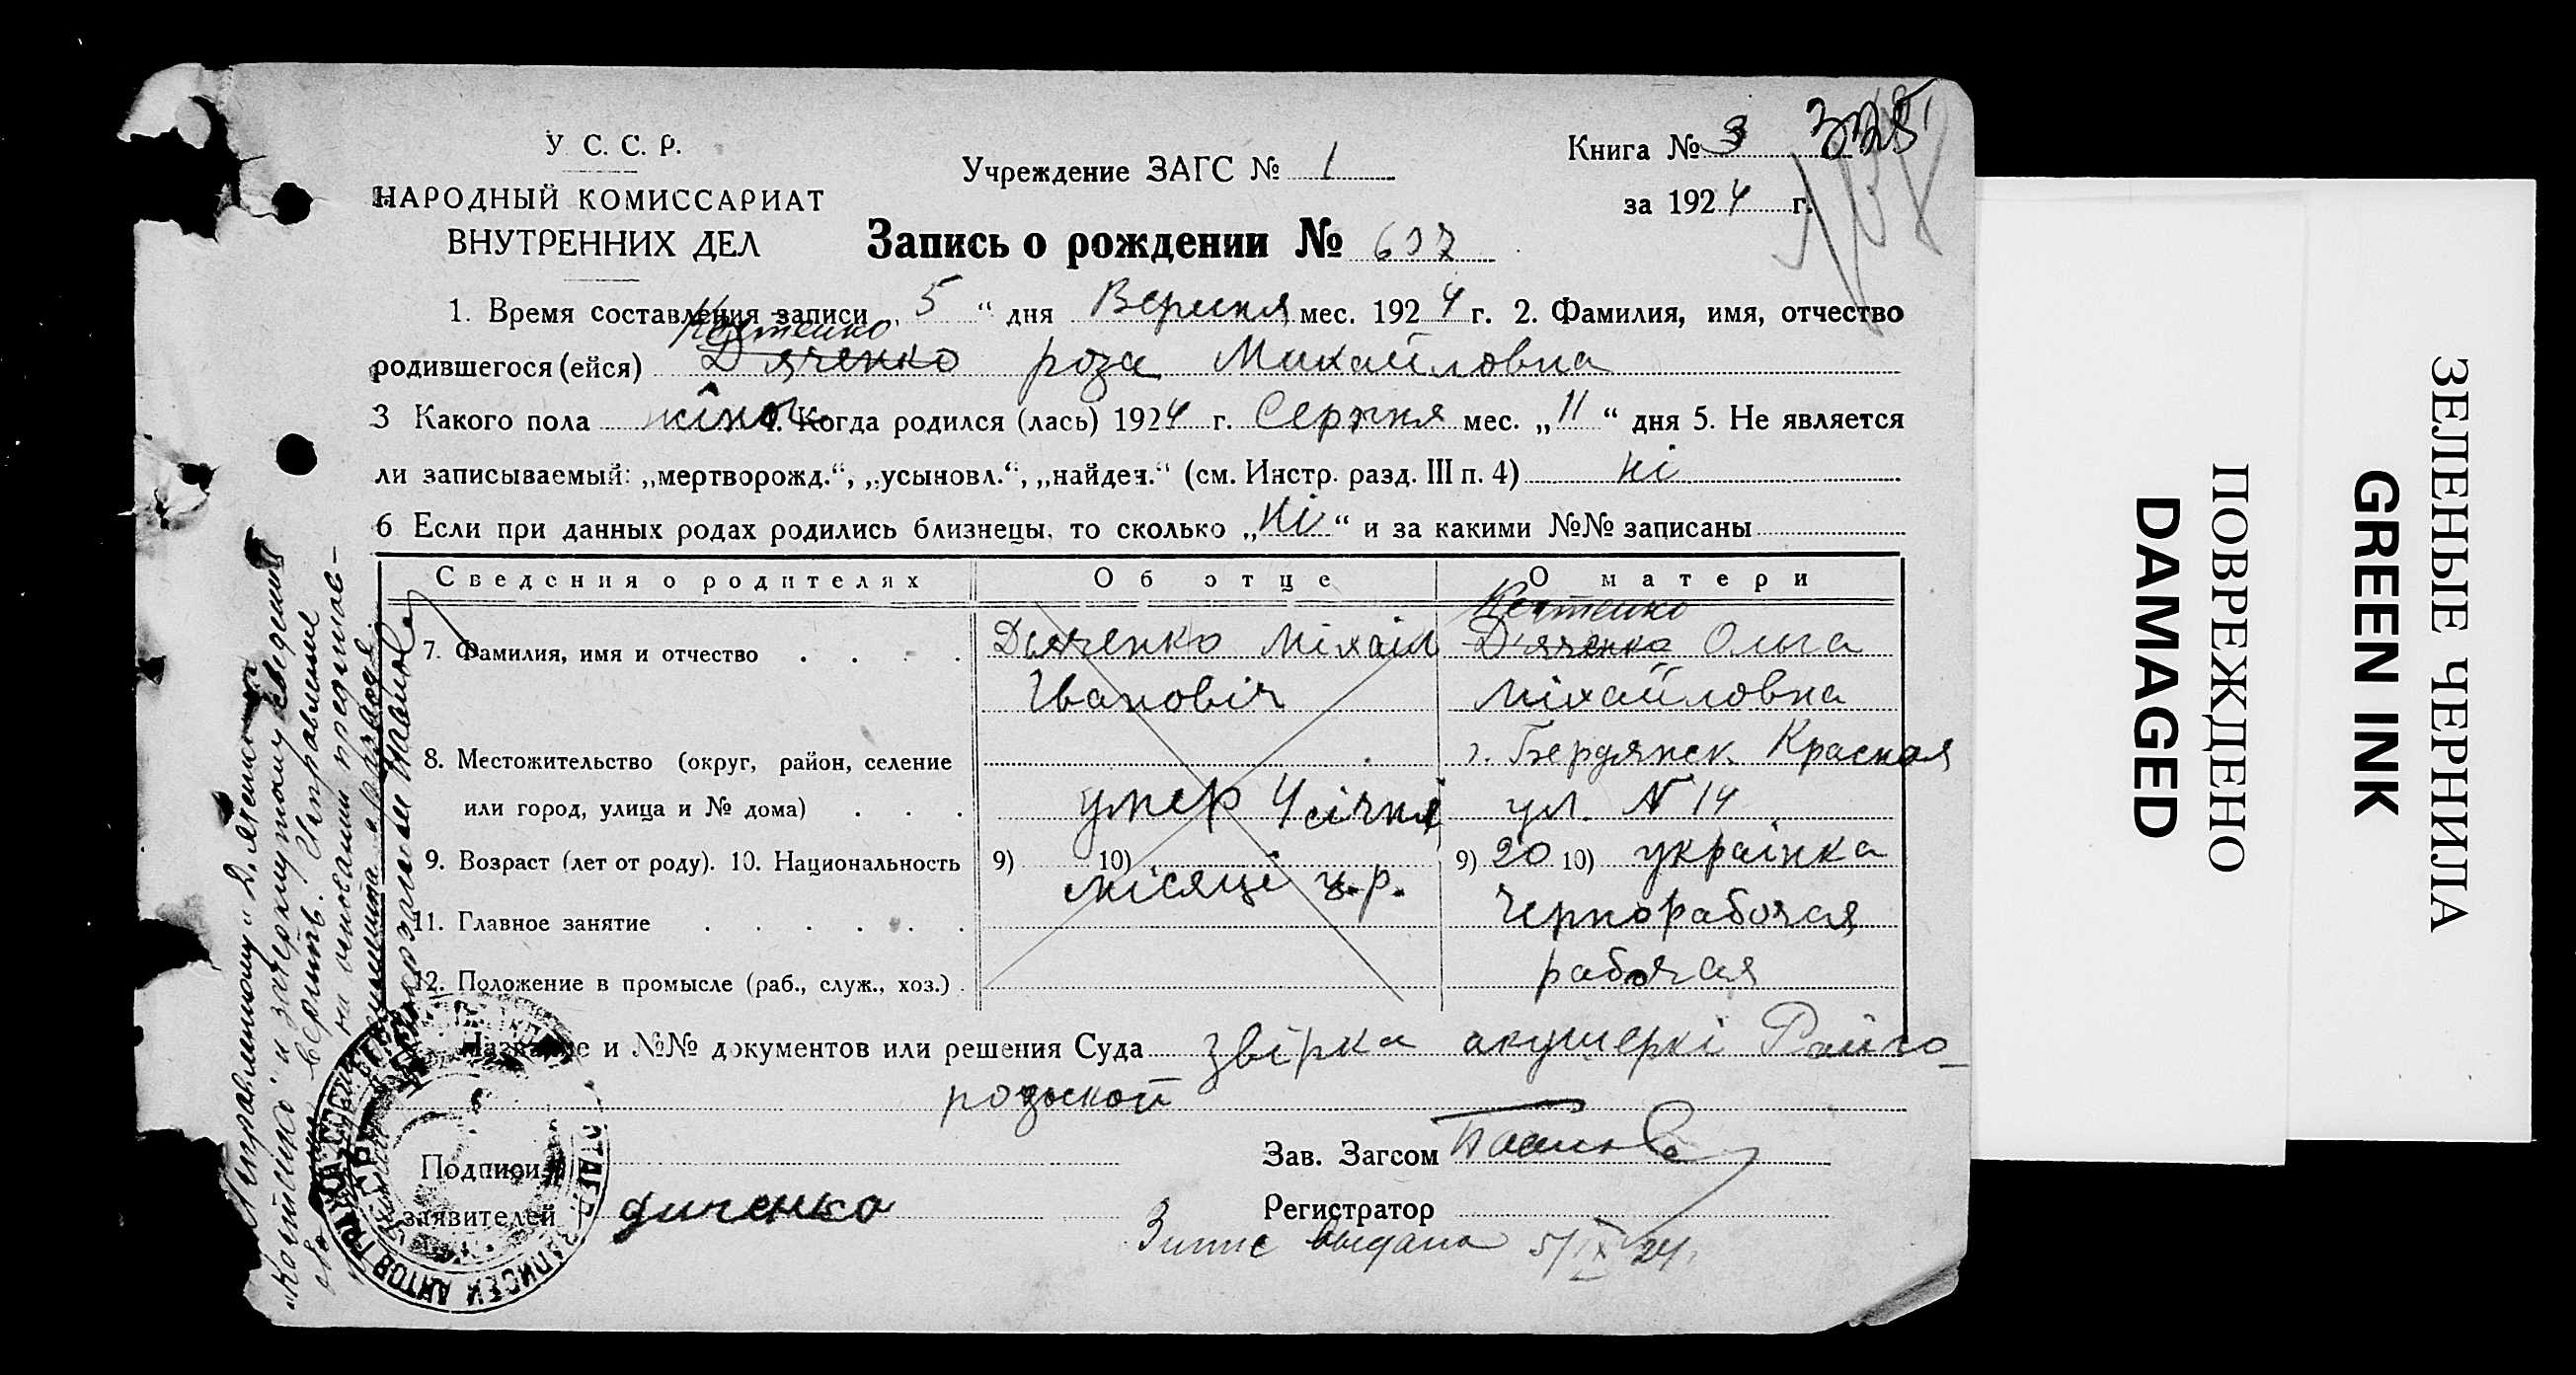 У. С. С. Р.
НАРОДНЫЙ КОМИССАРИАТ
ВНУТРЕННИХ ДЕЛ
Учреждение ЗАГС № 1
Книга № 3
за 1924 г.
Запись о рождении № 607
1. Время составления записи „ 5 “ дня Вересня мес. 1924 г. 2. Фамилия, имя, отчество
Костенко
родившегося (ейся) Дяченко роза Михайловна
3 Какого пола жіноч. 4. Когда родился (лась) 1924 г. Серпня мес. „ 11 “ дня 5. Не является
ли записываемый: „мертворожд.“, „усыновл.“, „найден.“ (см. Инстр. разд. III п. 4) ні
6 Если при данных родах родились близнецы, то сколько „ ні “ и за какими №№ записаны
Сведения о родителях Об отце О матери
Костенко
7. Фамилия, имя и отчество Дьяченко Міхаіл Д'яченко Ольга
Івановіч Міхайловна
8. Местожительство (округ, район, селение г. Бердянск. Красная
или город, улица и № дома) умер 4 січня ул. N 14
9. Возраст (лет от роду). 10. Национальность 9) 10) 9) 20 10) українка
місяця ц.р.
11. Главное занятие Чернорабочая
12. Положение в промысле (раб., служ., хоз.) рабочая
Название и №№ документов или решения Суда звірка акушеркі Райго-
родской
Подписи
заявителей дяченко
Зав. Загсом
Регистратор
Випис выдана 5/IX 24.
Исправленному „Дяченко
„Костенко“ и зачеркнутому
верить. Исправление
на основании
ЗАПИСЕЙ АКТОВ
ПОВРЕЖДЕНО
DAMAGED
ЗЕЛЕНЫЕ ЧЕРНИЛА
GREEN INK